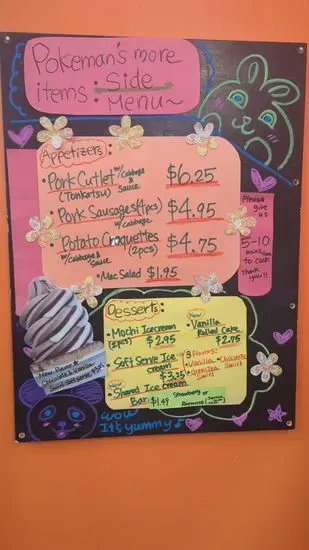 Pokeman's more
items: Side
Menu~
Appetizers
• Pork Cutlet w/ cabbage & Sauce
(Tonkatsu) $6.25
• Pork Sausages (4pcs) $4.95
w/ cabbage
• Potato Croquettes $4.75
w/ cabbage & Sauce (2pcs)
• Mac Salad $1.95
Please
give
us
5-10
mins
to cook
Thank
you!!
Desserts:
• Mochi Icecream
(2pcs) $2.95
• Soft Serve Ice
cream
$3.25
New
• Shaved Ice cream
Bar $1.49
New
• Vanilla
Rolled Cake
$2.75
3 Flavors:
• Vanilla • Chocolate
Swirl
Strawberry or
New Flavor
Chocolate & Vanilla
Swirl Soft serve
wow
It's yummy